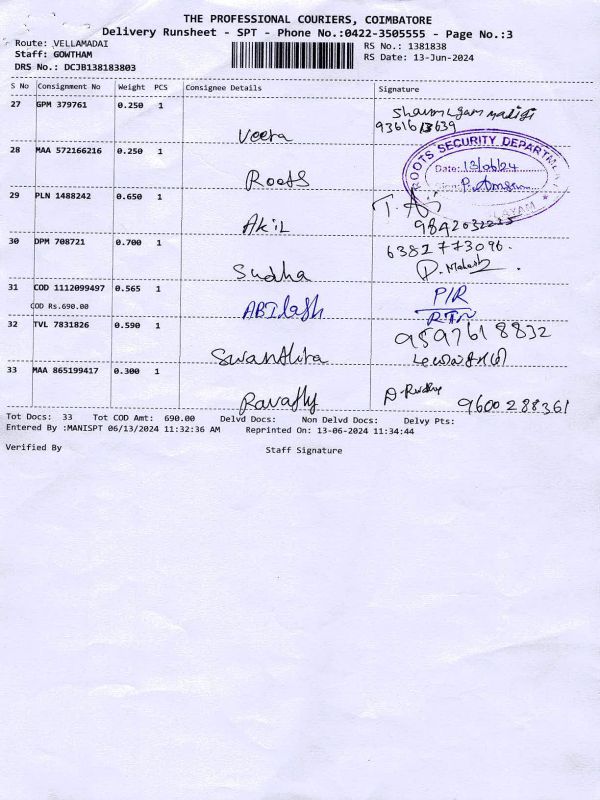 THE PROFESSIONAL COURIERS, COIMBATORE
Delivery Runsheet - SPT - Phone No.:0422-3505555 - Page No.:3
Route: VELLAMADAI
Staff: GOWTHAM
DRS No.: DCJB138183803
RS No.: 1381838
RS Date: 13-Jun-2024
S No Consignment No Weight PCS Consignee Details Signature
27 GPM 379761 0.250 1
9361613639
Veera
28 MAA 572166216 0.250 1
ROOTS SECURITY DEPARTMENT
Date: 13/06/24
Roots
29 PLN 1488242 0.650 1
Akil
30 DPM 708721 0.700 1
6382773096.
Sudha
P. Mahesh
31 COD 1112099497 0.565 1
COD Rs.690.00
ABIlash
P/R
RTN
32 TVL 7831826 0.590 1
9597618832
Swanthira
33 MAA 865199417 0.300 1
9600288361
Tot Docs: 33 Tot COD Amt: 690.00 Delvd Docs: Non Delvd Docs: Delvy Pts:
Entered By :MANISPT 06/13/2024 11:32:36 AM Reprinted On: 13-06-2024 11:34:44
Verified By Staff Signature